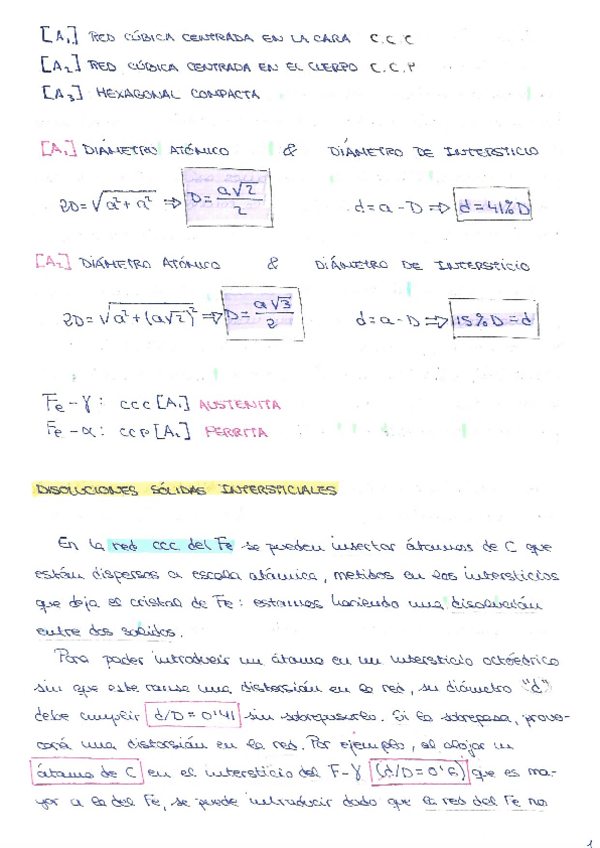 [A₁] RED CÚBICA CENTRADA EN LA CARA C.C.C
[A₂] RED CÚBICA CENTRADA EN EL CUERPO C.C.P
[A₃] HEXAGONAL COMPACTA
[A₁] DIÁMETRO ATÓMICO & DIÁMETRO DE INTERSTICIO
2D=√a²+a² ⇒ D=a√2/2 d=a-D ⇒ d=41%D
[A₂] DIÁMETRO ATÓMICO & DIÁMETRO DE INTERSTICIO
2D=√a²+(a√2)² ⇒ D=a√3/2 d=a-D ⇒ 15%D=d
Fe-γ: CCC [A₁] AUSTENITA
Fe-α: CCP [A₂] FERRITA
DISOLUCIONES SÓLIDAS INTERSTICIALES
En la red CCC del Fe se pueden insertar átomos de C que
están dispersos a escala atómica, metidos en los intersticios
que deja el cristal de Fe: estamos haciendo una disolución
entre dos solidos.
Para poder introducir un átomo en un intersticio octoédrico
sin que este cause una distorsión en la red, su diámetro "d"
debe cumplir d/D=0'41 sin sobrepasarlo. Si lo sobrepasa, provo-
cará una distorsión en la red. Por ejemplo, al alojar un
átomo de C en el intersticio del F-γ (d/D=0'6) que es ma-
yor a la del Fe, se puede introducir dado que la red del Fe no